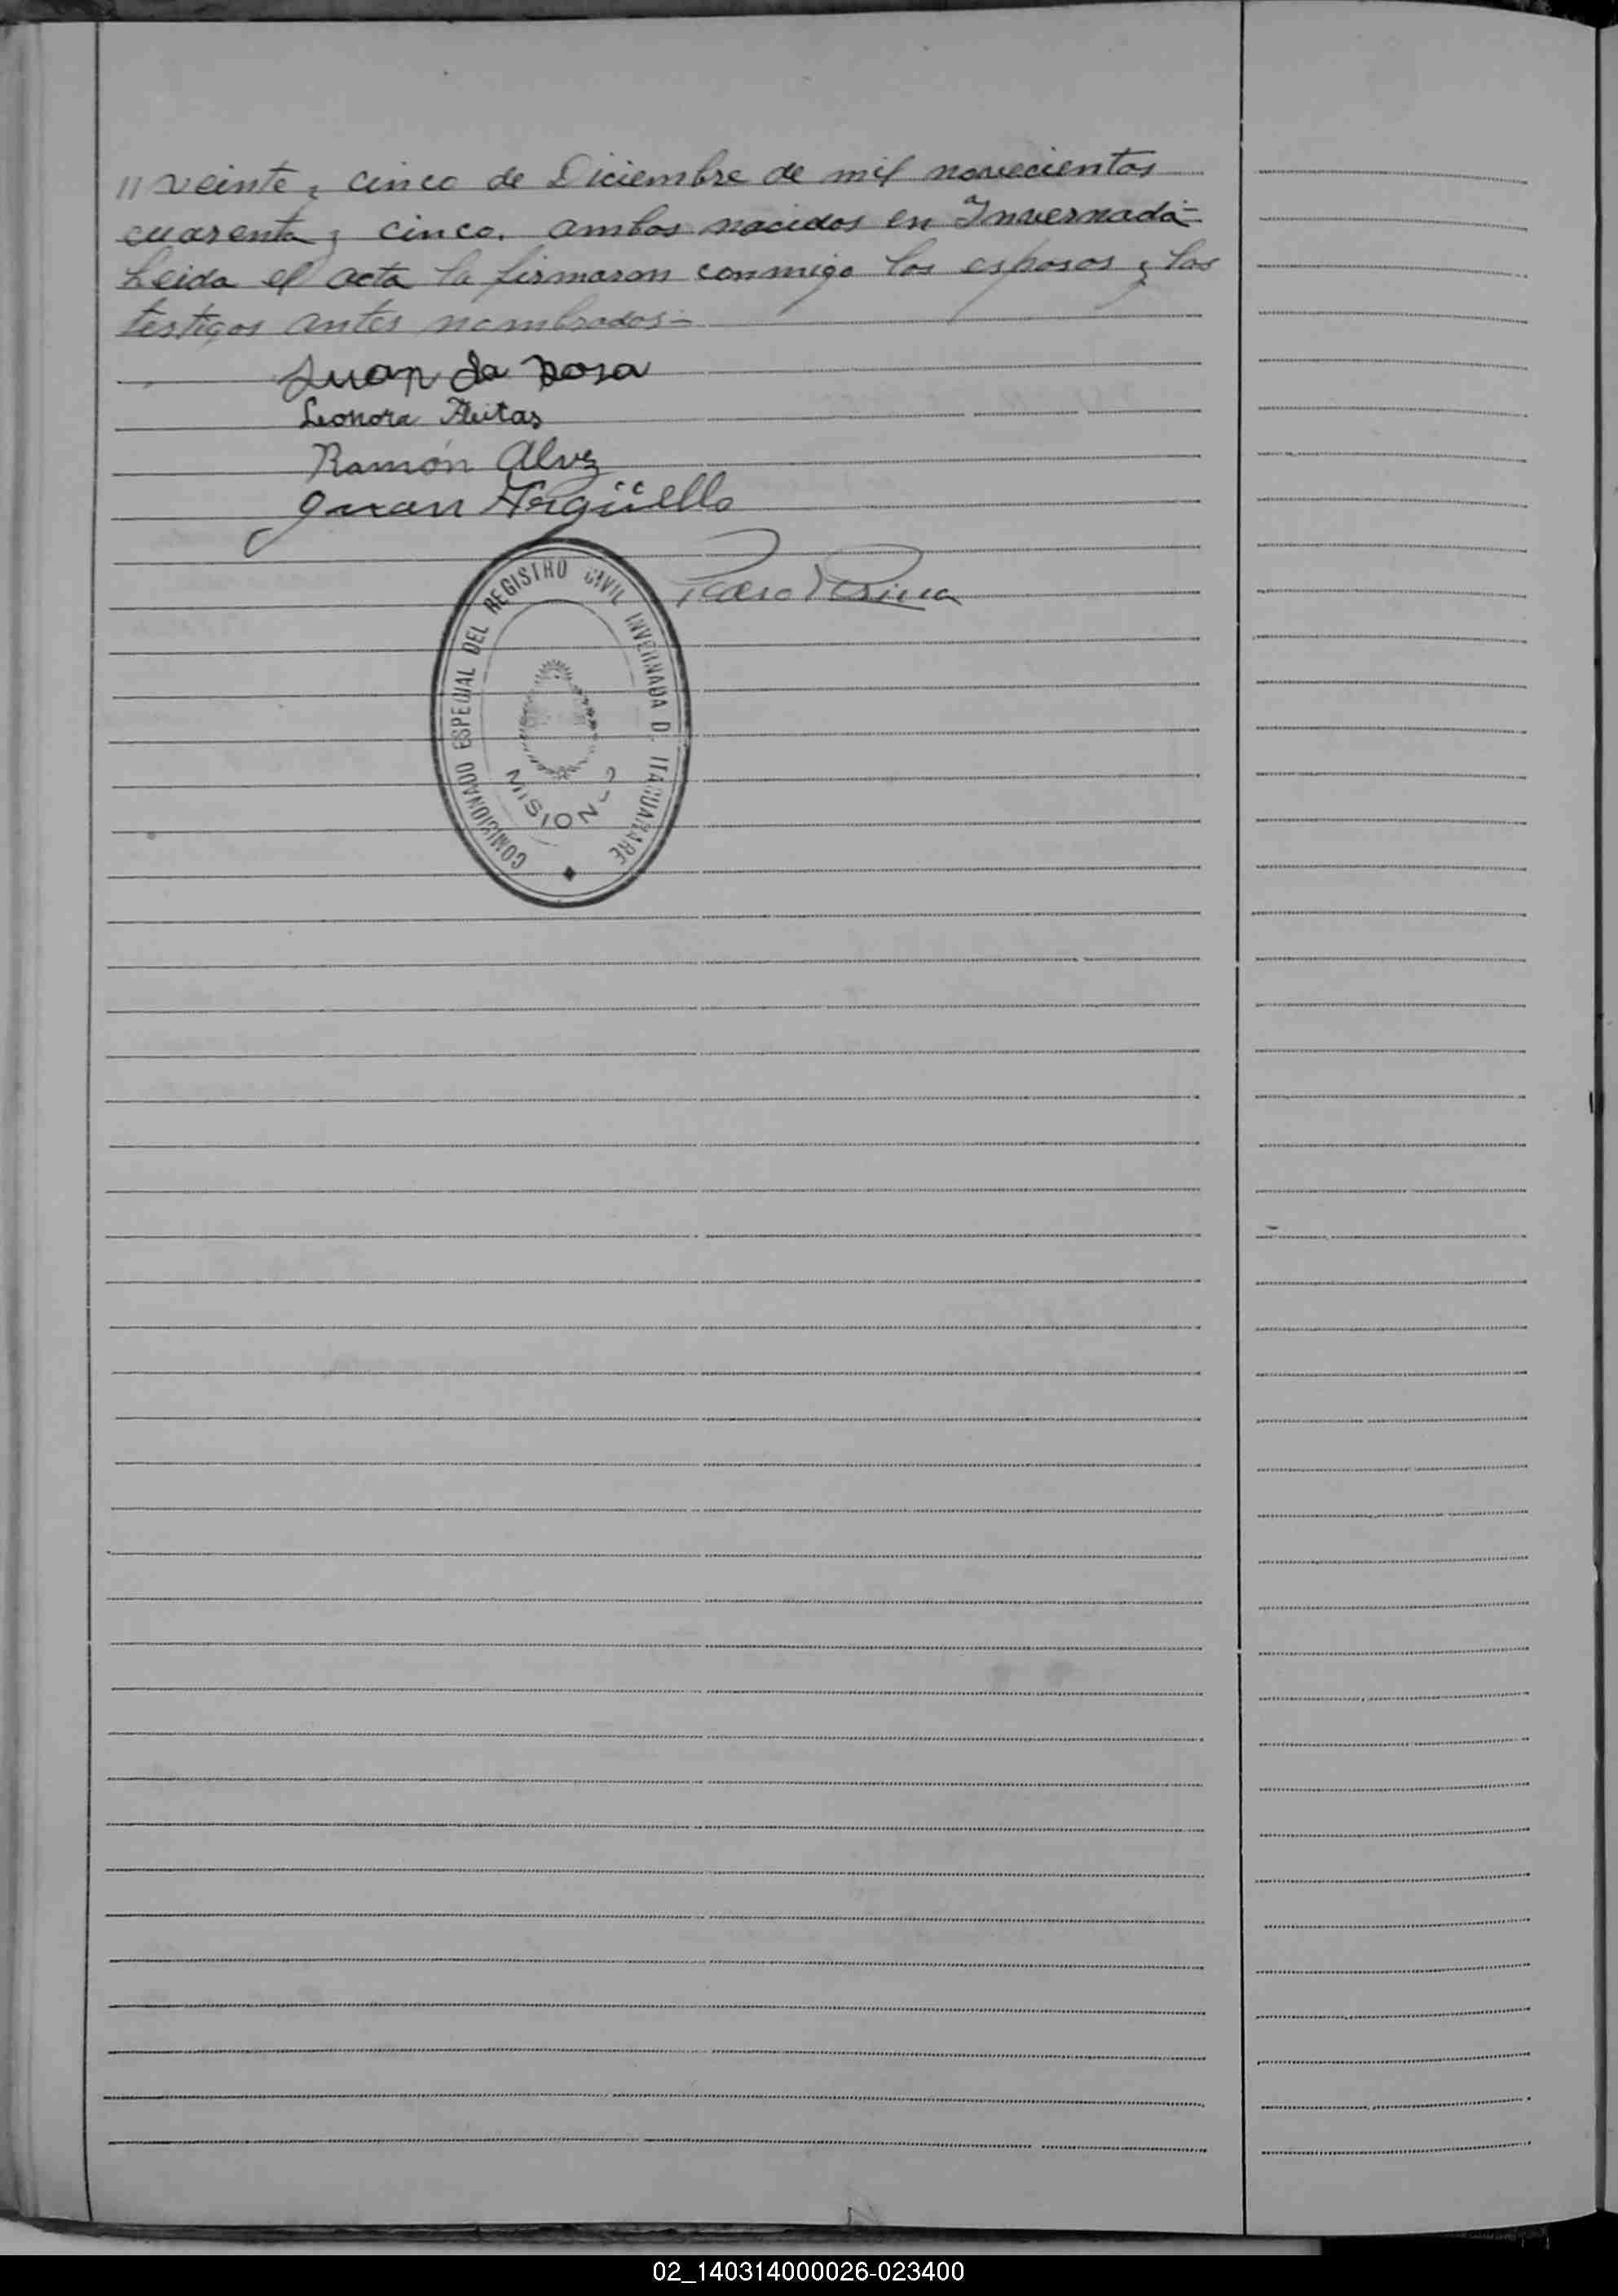 // veinte y cinco de Diciembre de mil novecientos
cuarenta y cinco. ambos nacidos en Invernada-
Leida el acta la firmaron conmigo los esposos y los
testigos antes nombrados-
Juan da Rosa
Leonora Fleitas
Ramón Alvez
Juan Argüello
Pedro
COMISIONADO ESPECIAL DEL REGISTRO CIVIL INVERNADA DE ITACUARARE
MISIONES
02_140314000026-023400